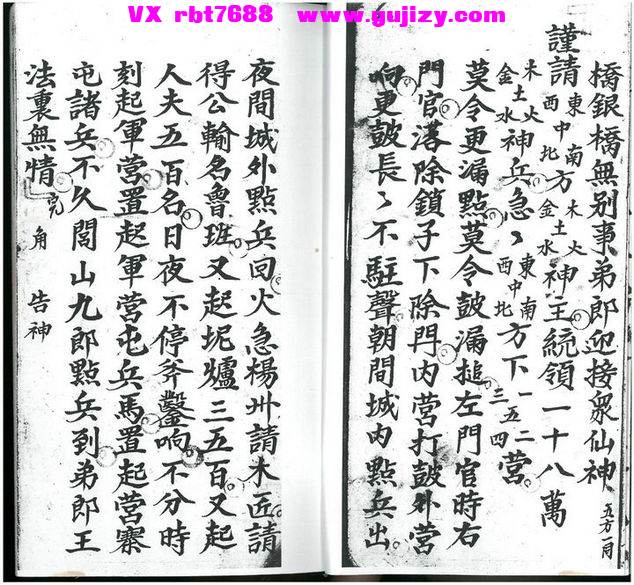 VX rbt7688 www.gujizy.com
橋銀橋無别事弟郎迎接衆仙神 五方一同
謹請東南西北中方木火金水土神王統領一十八萬
木火金水土神兵急〻東南西北中方下一二三四五營
莫令更漏點莫令鼓漏搥左門官時右
門官落除鎖子下除門内營打鼓外營
响更鼓長〻不駐聲朝間城内點兵出
夜間城外點兵回火急楊州請木匠請
得公輸名魯班又起坭爐三五百又起
人夫五百名日夜不停斧鑿响不分時
刻起軍營置起軍營屯兵馬置起營寨
屯諸兵不久閭山九郎點兵到弟郎王
法裏無情完 角 告神